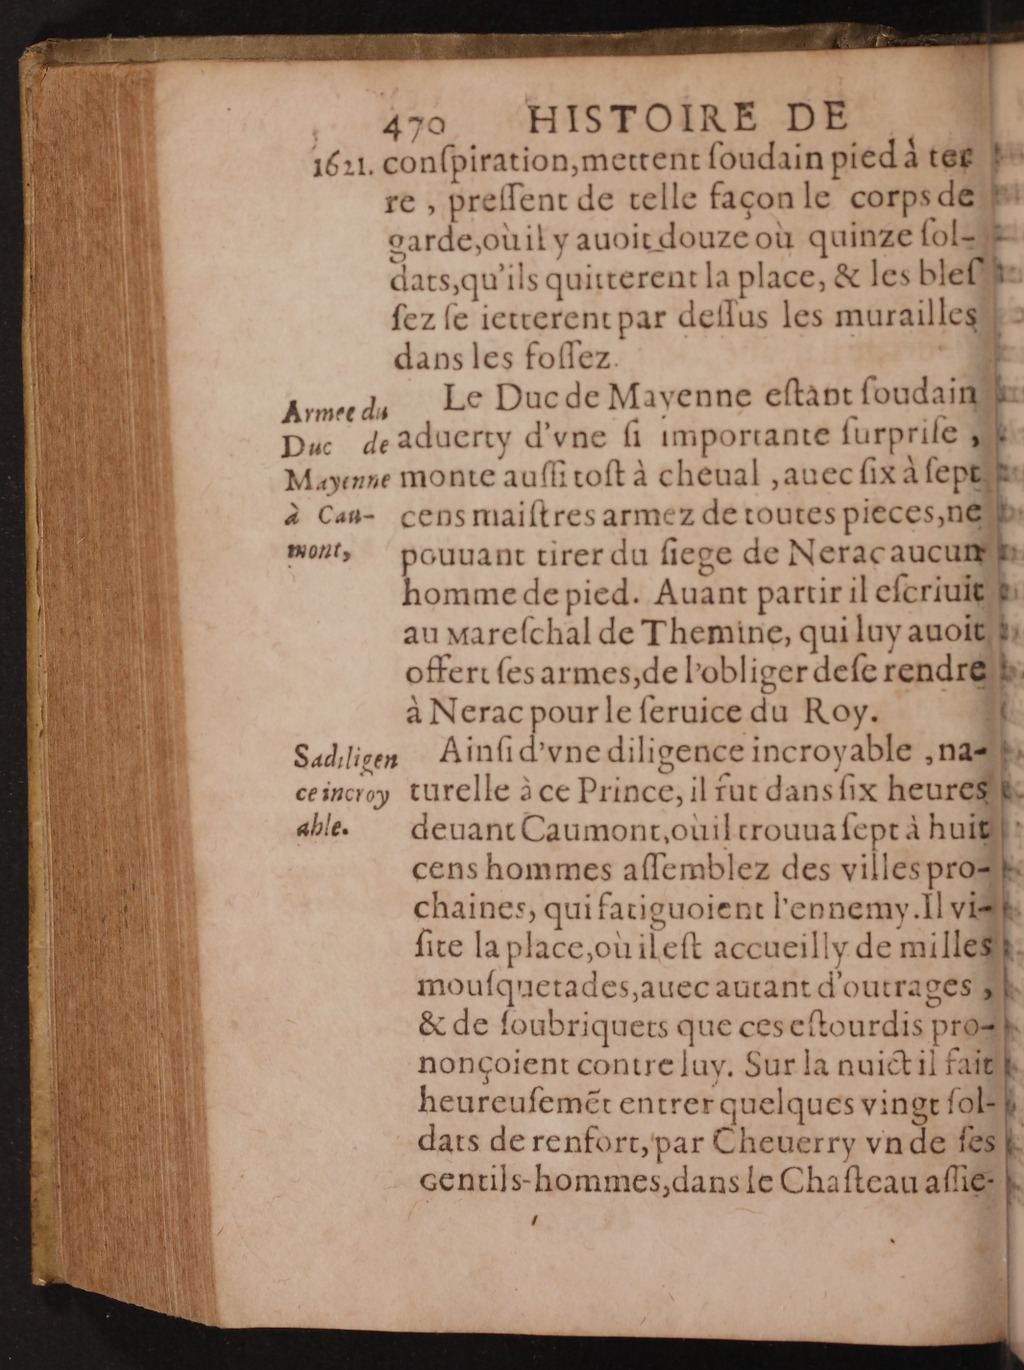 470 HISTOIRE DE
1621. conſpiration, mettent ſoudain pied à ter
re, preſſent de telle façon le corps de
garde, où il y auoit douze où quinze ſol-
dats, qu'ils quitterent la place, & les bleſ
ſez ſe ietterent par deſſus les murailles
dans les foſſez.
Le Duc de Mayenne eſtant ſoudain
Armee du
Duc de
Mayenne
à Cau-
mont,
aduerty d'vne ſi importante ſurpriſe,
monte auſſi toſt à cheual, auec ſix à ſept
cens maiſtres armez de toutes pieces, ne
pouuant tirer du ſiege de Nerac aucun
homme de pied. Auant partir il eſcriuit
au Mareſchal de Themine, qui luy auoit
offert ſes armes, de l'obliger de ſe rendre
à Nerac pour le ſeruice du Roy.
Sa diligen
ce incroy
able.
Ainſi d'vne diligence incroyable, na-
turelle à ce Prince, il fut dans ſix heures
deuant Caumont, où il trouua ſept à huit
cens hommes aſſemblez des villes pro-
chaines, qui fatiguoient l'ennemy. Il vi-
ſite la place, où il eſt accueilly de milles
mouſquetades, auec autant d'outrages,
& de ſoubriquets que ces eſtourdis pro-
nonçoient contre luy. Sur la nuict il fait
heureuſemẽt entrer quelques vingt ſol-
dats de renfort, par Cheuerry vn de ſes
Gentils-hommes, dans le Chaſteau aſſie-